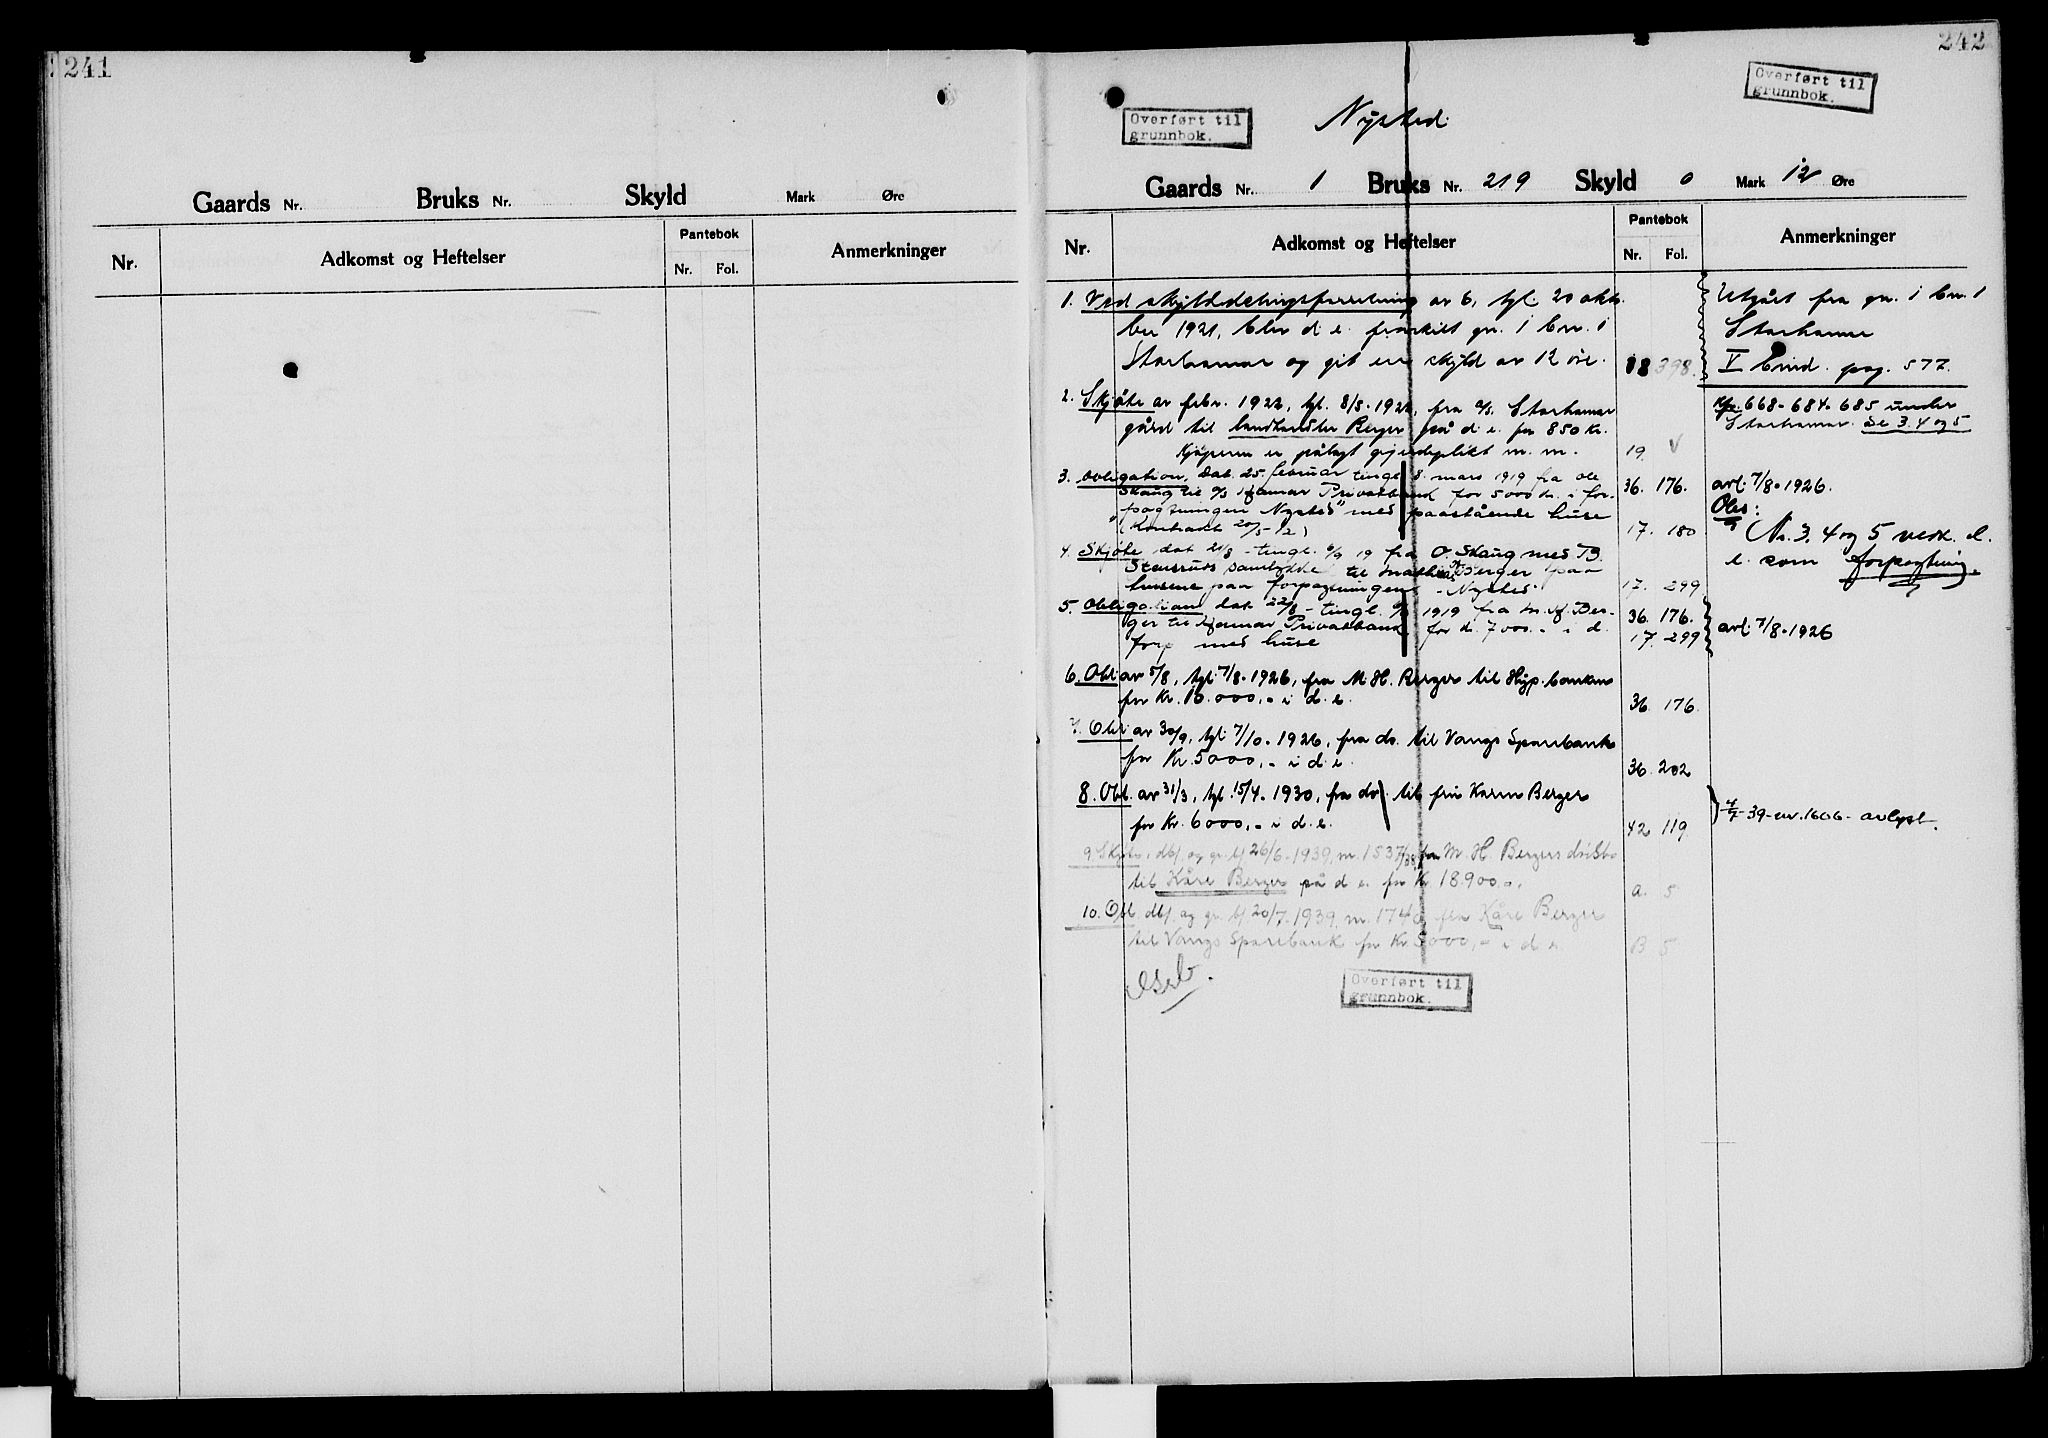 241
Gaards Nr. Bruks Nr. Skyld Mark Øre
Nr. Adkomst og Heftelser Pantebok Nr. Fol. Anmerkninger
242
Overført til
grunnbok.
Overført til
grunnbok.
Nysted.
Gaards Nr. 1 Bruks Nr. 219 Skyld 0 Mark 12 Øre
Nr. Adkomst og Heftelser Pantebok Nr. Fol. Anmerkninger
1. Ved skylddelingsforretning av 6, tgl. 20 okto-
ber 1921, blev d. e. fraskilt gn. 1 bn. 1
Storhamar og git en skyld av 12 øre. 18 398.
Utgått fra gn. 1 bn. 1
Storhamar
V bind. pag. 577.
2. Skjøte av febr. 1922, tgl. 8/3-1922, fra a/s. Storhamar
gård til landhandler Berger på d. e. for 850 kr.
Kjøperen er pålagt gjerdeplikt m. m. 19. V
668-684-685 under
Storhamar. Se 3.4 og 5
3. Obligation, dat. 25. februar tingl. 8. mars 1919 fra Ole
Skaug til a/s Hamar Privatbank for 5000 kr. i for-
pagtningen "Nysted" med paastående huse 36. 176.
(Kontrakt 20/5-12) 17. 180
avl. 7/8-1926.
Obs:
(Nr. 3, 4 og 5 vedk. d.
e. som forpagtning.
4. Skjøte dat 21/8 - tingl. 6/9 19 fra O. Skaug med B.
samtykke til Mathias H. Berger paa
husene paa forpagtningen - Nysted. 17. 299
5. Obligation dat 22/8 - tingl. 6/9 1919 fra M. H. Ber- 36. 176.
ger til Hamar Privatbank for kr. 7000.- i d. 17. 299
forp med huse
avl. 7/8-1926
6. Obl. av 5/8, tgl. 7/8-1926, fra M. H. Berger til Hyp. banken
for Kr. 10.000,- i d. e. 36. 176.
7. Obl. av 30/9, tgl. 7/10-1926, fra do. til Vangs Sparebank
for Kr. 5000,- i d. e. 36. 202
8. Obl. av 31/3, tgl. 15/4-1930, fra do. til fru Karen Berger
for Kr. 6000,- i d. e. 42 119
4/7-39-nr. 1606- avlyst.
9. Skjøte, dbf. og gr. bf 26/6-1939, nr. 1537/38, fra M. H. Bergers dødsbo
til Kåre Berger på d e. for Kr. 18.900.-. A. 5
10. Obl. dbf. og gr. bf 20/7.1939, nr. 1740 fra Kåre Berger
til Vangs Sparebank for Kr. 5000,- i d. e. B 5
Overført til
grunnbok.